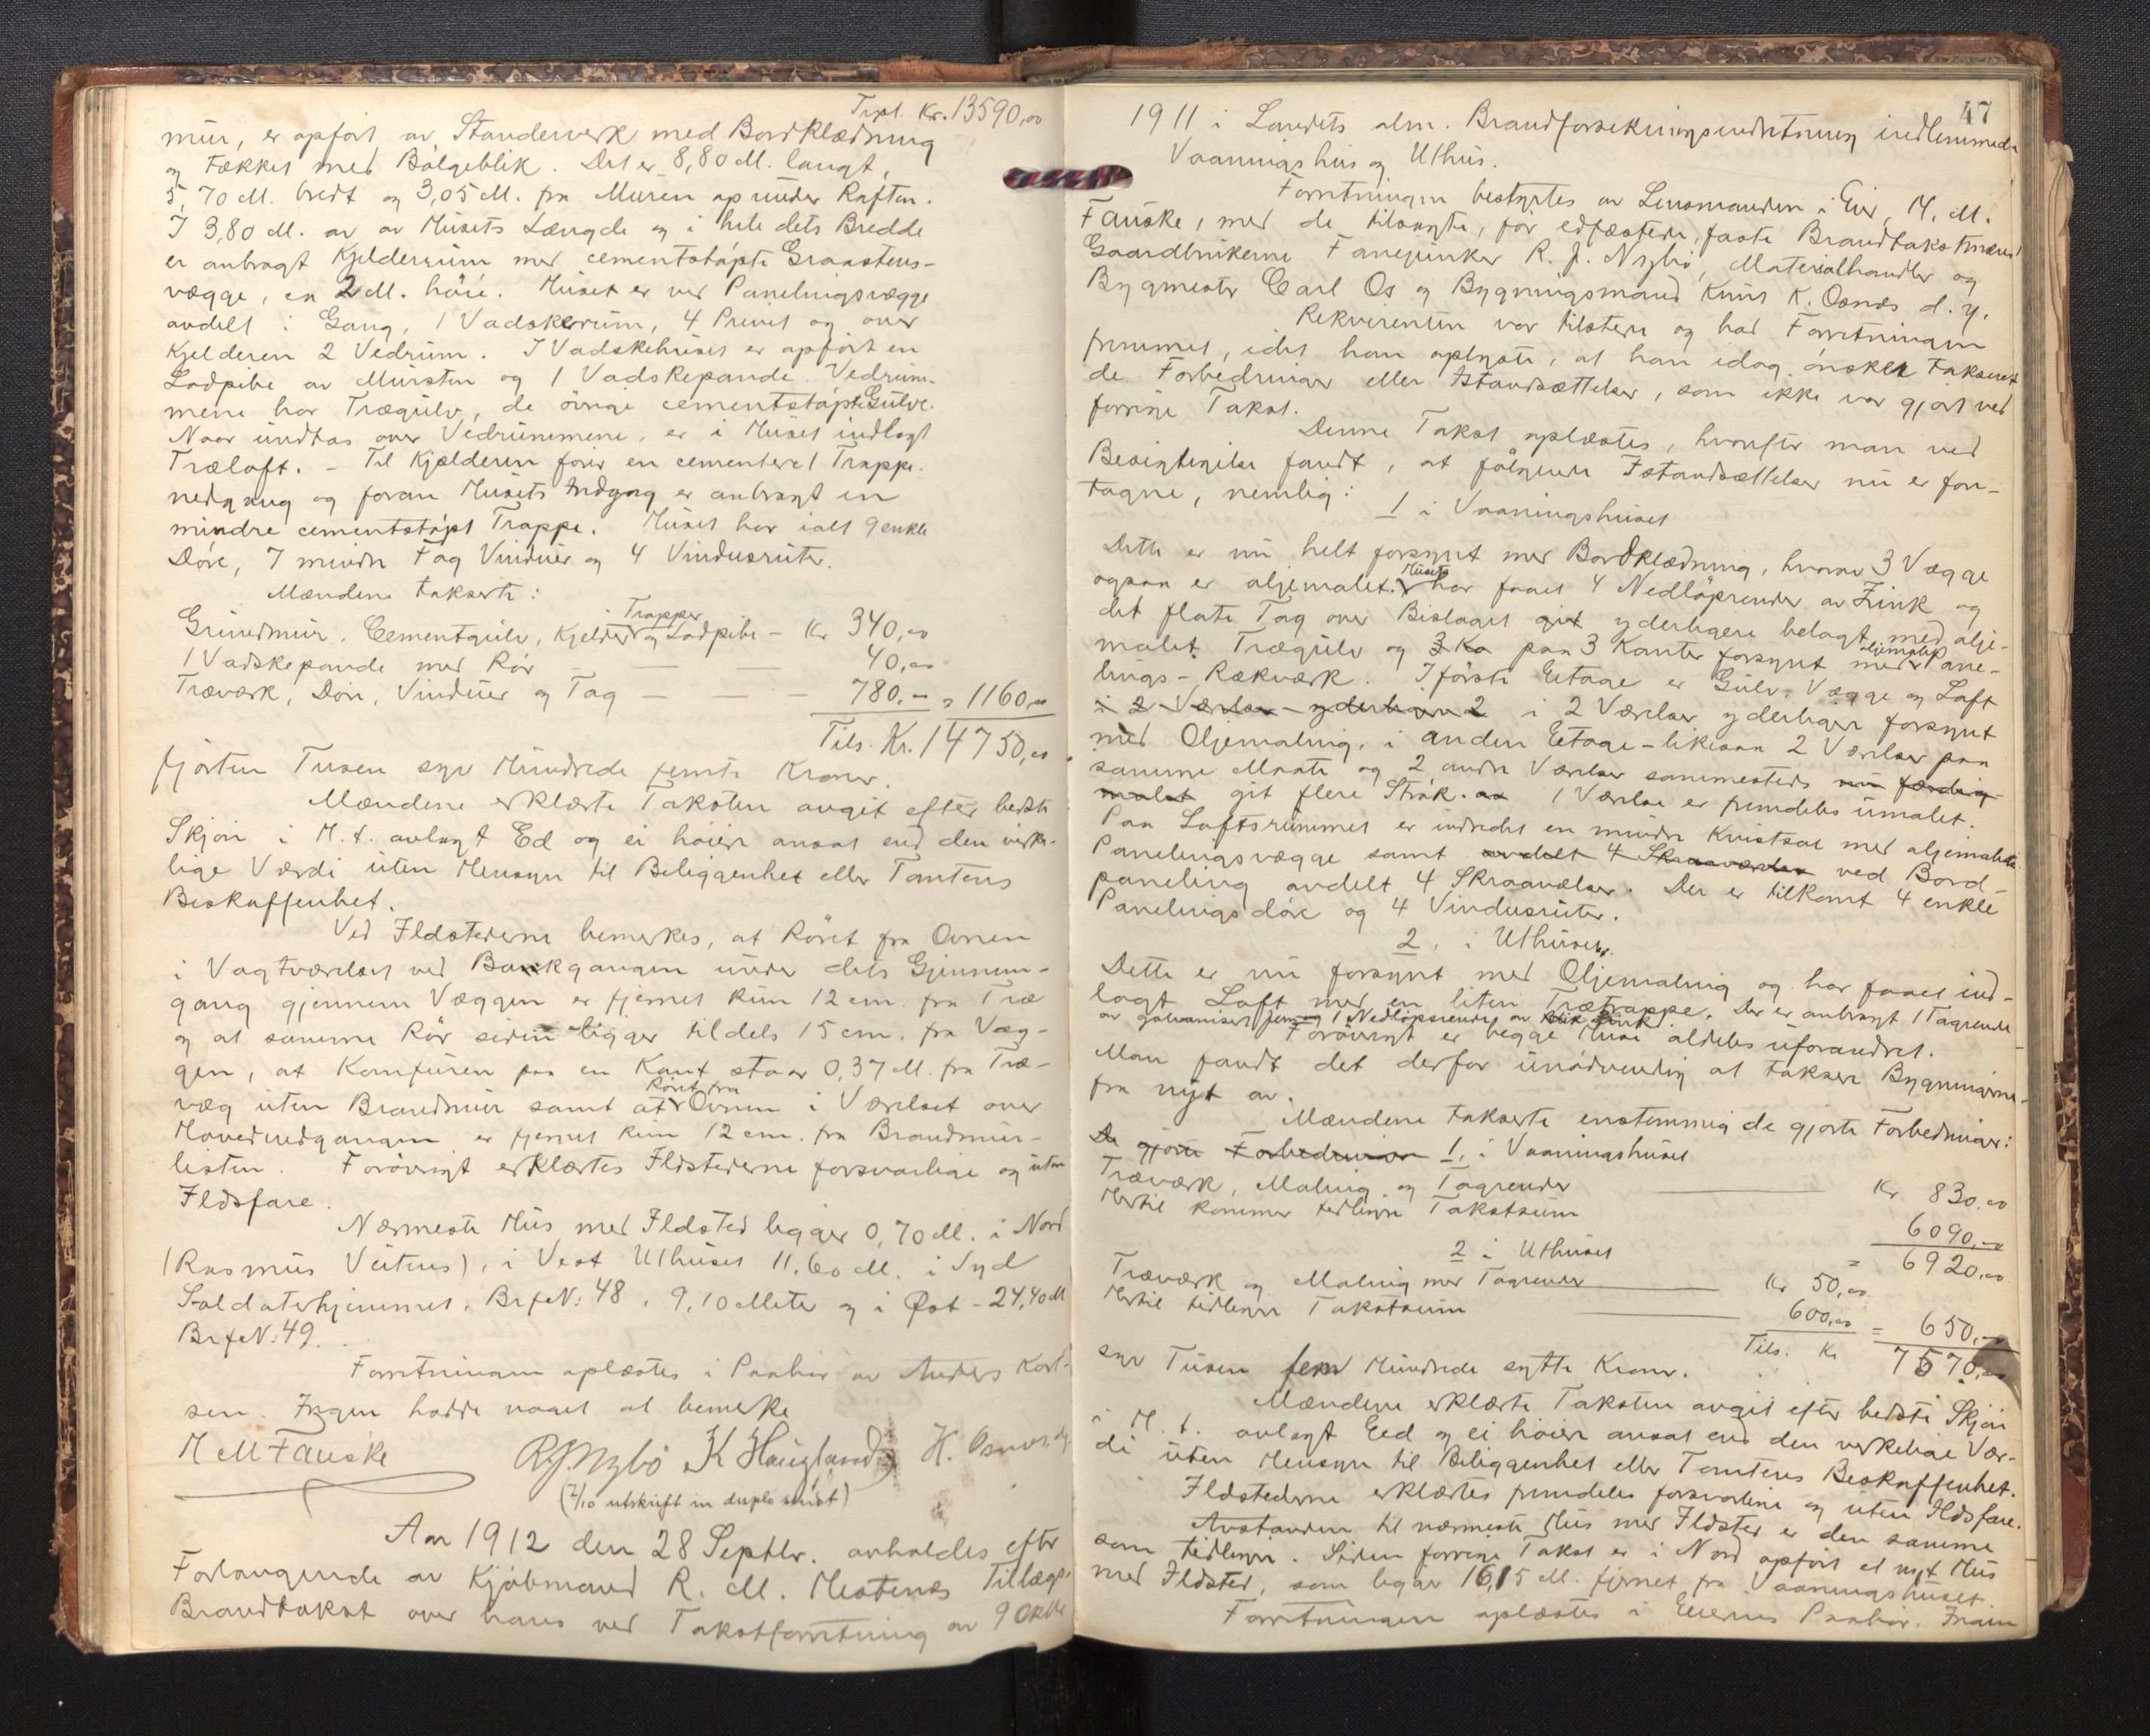 Trpt. Kr. 13590,00
mur, er opført av Standerverk med Bordklædning
og tækket med Bölgeblik. Det er 8,80 M. langt,
5,70 M. bredt og 3,05 M. fra Muren op under Raften.
I 3,80 M. av av Husets Længde og i hele dets Bredde
er anbragt Kjelderrum med cementstöpte Graastens-
vægge, ca 2 M. höie. Huset er ved Panelingsvægge
avdelt i Gang, 1 Vadskerum, 4 Privet og over
Kjelderen 2 Vedrum. I Vadskehuset er opført en
Lodpibe av Mursten og 1 Vadskepande. Vedrum-
mene har Trægulv, de övrige cementstöpte Gulve.
Naar undtas over Vedrummene, er i Huset indlagt
Træloft. - Til Kjælderen förer en cementeret Trappe-
nedgang og foran Husets Indgang er anbragt en
mindre cementstöpt Trappe. Huset har ialt 9 enkle
Döre, 7 mindre Fag Vinduer og 4 Vindusruter.
Mændene takserte:
Grundmur, Cementgulv, Kjelder Trapper og Lodpibe - Kr 340,00
1 Vadskepande med Rör - 40,00
Træverk, Döre, Vinduer og Tag - 780.- = 1160,00
Tils. Kr. 14750,00
fjorten Tusen syv Hundrede femti Kroner.
Mændene erklærte Taksten avgit efter bedste
Skjön i H. t. avlagt Ed og ei höiere ansat end den virke-
lige Værdi uten Hensyn til Beliggenhet eller Tomtens
Beskaffenhet.
Ved Ildstederne bemerkes, at Röret fra Ovnen
i Vagtværelset ved Bankgangen under dets Gjennem-
gang gjennem Væggen er fjernet kun 12 cm. fra Træ
og at samme Rör siden ligger tildels 15 cm. fra Væg-
gen, at Komfuren paa en Kant staar 0,37 M. fra Træ-
væg uten Brandmur samt at Röret fra Ovnen i Værelset over
Hovedindgangen er fjernet kun 12 cm. fra Brandmur-
listen. Forövrigt erklærtes Ildstederne forsvarlige og uten
Ildsfare.
Nærmeste Hus med Ildsted ligger 0,70 M. i Nord
(Rasmus Veiteus), i Vest Uthuset 11,60 M. i Syd
Soldaterhjemmet, BrfN: 48, 9,10 Meter og i Øst - 24,40 M
BrfN: 49.
Forretningen oplæstes i Paahör av Anders Karl-
sen. Ingen hadde noget at bemerke
H M Fauske R J Nybö K Haugland H. Osnes d.y.
(7/10 utskrift in duplo utsist)
Aar 1912 den 28 Septbr. avholdes efter
Forlangende av Kjöbmand R. M. Hestenes Tillægs-
Brandtakst over hans ved Takstforretning av 9 Oktbr
47
1911 i Landets alm. Brandforsikringsindretning indlemmede
Vaaningshus og Uthus.
Forretningen bestyrtes av Lensmanden i Eid, H. M.
Fauske, med de tilsagte, för edfæstede, faste Brandtakstmænd
Gaardbrukerne Fanejunker R. J. Nybö, Materialhandler og
Bygmester Carl Os og Bygningsmand Knut K. Osnes d. y.
Rekvirenten var tilstede og bad Forretningen
fremmet, idet han oplyste, at han idag önsker takseret
de Forbedringer eller Istandsættelser, som ikke var gjort ved
forrige Takst.
Denne Takst oplæstes, hvorefter man ved
Besigtigelse fandt, at fölgende Istandsættelser nu er fore-
tagne, nemlig:
1 i Vaaningshuset
Dette er nu helt forsynt med Bordklædning, hvorav 3 Vægge
ogsaa er oljemalet. Huset har faaet 4 Nedlöpsrender av Zink og
det flate Tag over Bislaget git yderligere belagt med olje-
malet Trægulv og 3 Ka paa 3 Kanter forsynt med oljemalet Pane-
lings-Rækværk. I förste Etage er Gulv, Vægge og Loft
i 2 Værelser yderligere 2 i 2 Værelser yderligere forsynt
med Oljemaling, i anden Etage - likesaa 2 Værelser paa
samme Maate og 2 andre Værelser sammesteds nu færdig
malet git flere Strök. 1 Værelse er fremdeles umalet.
Paa Loftsrummet er indredet en mindre Kvistsal med oljemalte
Panelingsvægge samt avdelt 4 Skraaværelser ved Bord-
paneling avdelt 4 Skraavælser. Der er tilkomt 4 enkle
Panelingsdöre og 4 Vindusruter.
2, i Uthuset.
Dette er nu forsynt med Oljemaling og har faaet ind-
lagt Loft med en liten Trætrappe. Der er anbragt 1 Tagrende
av galvanisert Jern og 1 Nedlöpsrende av Zink
Forövrigt er begge Huse aldeles uforandret.
Man fandt det derfor unödvendig at taksere Bygningerne
fra nyt av.
Mændene takserte enstemmig de gjorte Forbedringer:
De gjorte Forbedringer 1, i Vaaningshuset
Træverk, Maling og Tagrender Kr 830,00
Hertil kommer tidligere Takstsum 6090,00
= 6920,00
2 i Uthuset
Træværk og Maling med Tagrender Kr 50,00
Hertil tidligere Takstsum 600,00 = 650,00
Tils. Kr 7570,00
syv Tusen fem Hundrede sytti Kroner.
Mændene erklærte Taksten avgit efter bedste Skjön
i H. t. avlagt Eed og ei höiere ansat end den virkelige Vær-
di uten Hensyn til Beliggenhet eller Tomtens Beskaffenhet.
Ildstederne erklærtes fremdeles forsvarlige og uten Ildsfare.
Avstanden til nærmeste Hus med Ildsted er den samme
som tidligere. Siden forrige Takst er i Nord opfört et nyt Hus
med Ildsted, som ligger 16,15 M. fjernet fra Vaaningshuset.
Forretningen oplæstes i Eierens Paahör. Ingen